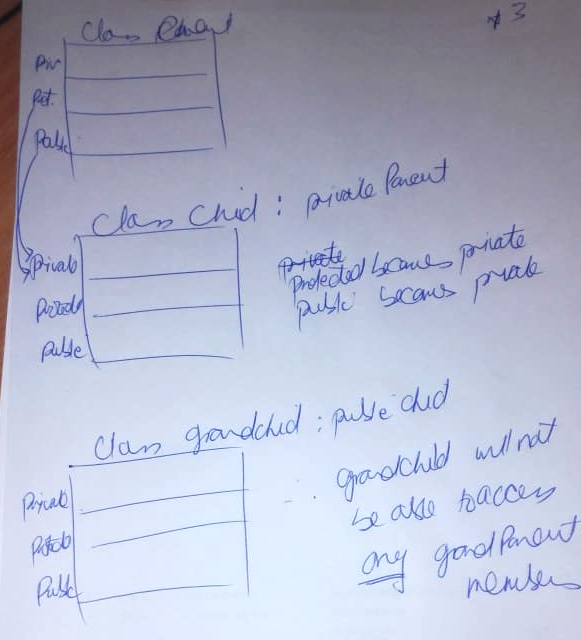 * 3
Class Parent
Priv
Prot.
Public
Class Child : private Parent
Private
Protected
Public
private
Protected becomes private
public becomes private
Class grandchild : public child
Private
Protected
Public
grandchild will not
be able to access
any grandParent
members